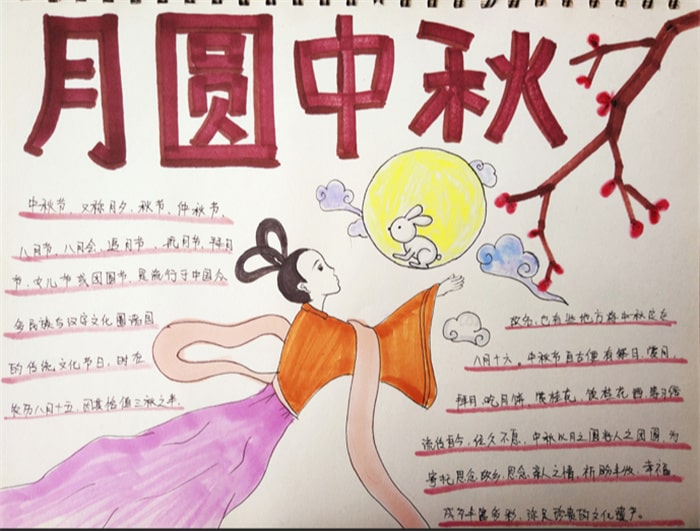 月圆中秋
中秋节，又称月夕、秋节、仲秋节、
八月节、八月会、追月节、玩月节、拜月
节、女儿节或团圆节，是流行于中国众
多民族与汉字文化圈诸国
的传统文化节日，时在
农历八月十五；因其恰值三秋之半，
故名，也有些地方将中秋节定在
八月十六。中秋节自古便有祭月、赏月、
拜月、吃月饼、赏桂花、饮桂花酒等习俗
流传至今，经久不息。中秋以月之圆兆人之团圆，为
寄托思念故乡，思念亲人之情，祈盼丰收、幸福，
成为丰富多彩、弥足珍贵的文化遗产。